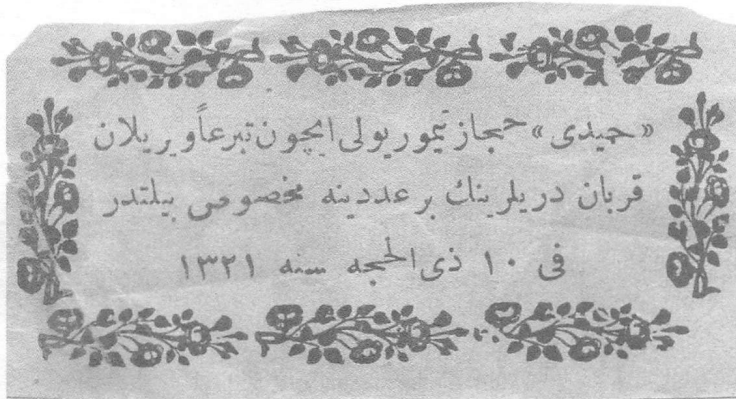 «حميدى» حجاز تيمور يولى ايچون تبرعاً ويريلان
قربان دريلرينك بر عددينه مخصوص بيلتدر
فى ١٠ ذى الحجه سنه ١٣٢١